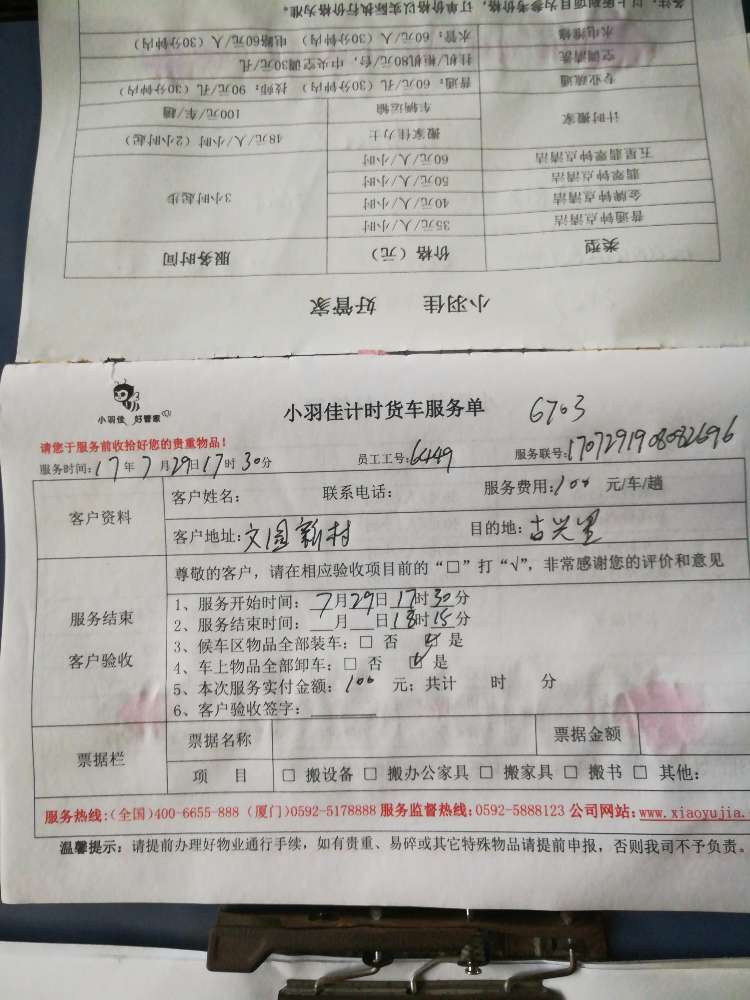 备注：以上原则项目为参考价格，订单价格以实际执行价格为准。
水电维修 水管：60元/人（30分钟内） 电路60元/人（30分钟内）
空调清洗 挂机/柜机80元/台，中央空调30元/孔
专业疏通 普通：60元/孔（30分钟内） 技师：90元/孔（30分钟内）
计时搬家 车辆运输 100元/车/趟
搬家佳力士 48元/人/小时（2小时起）
五星翡翠钟点清洁 60元/人/小时
翡翠钟点清洁 50元/人/小时
金牌钟点清洁 40元/人/小时 3小时起步
普通钟点清洁 35元/人/小时
类型 价格（元） 服务时间
小羽佳 好管家
小羽佳 好管家
小羽佳计时货车服务单 6703
请您于服务前收拾好您的贵重物品！
服务时间：17年7月29日17时30分 员工工号：6449 服务联号：1707291908082696
客户资料 客户姓名： 联系电话： 服务费用：100 元/车/趟
客户地址：文园新村 目的地：古兴里
尊敬的客户，请在相应验收项目前的“□”打“√”，非常感谢您的评价和意见
服务结束 客户验收
1、服务开始时间：7月29日17时30分
2、服务结束时间：__月__日18时15分
3、候车区物品全部装车：□ 否 ☑ 是
4、车上物品全部卸车：□ 否 ☑ 是
5、本次服务实付金额：100 元；共计 时 分
6、客户验收签字：______
票据栏 票据名称 票据金额
项 目 □ 搬设备 □ 搬办公家具 □ 搬家具 □ 搬书 □ 其他：
服务热线：（全国）400-6655-888（厦门）0592-5178888 服务监督热线：0592-5888123 公司网站：www.xiaoyujia.
温馨提示：请提前办理好物业通行手续，如有贵重、易碎或其它特殊物品请提前申报，否则我司不予负责。